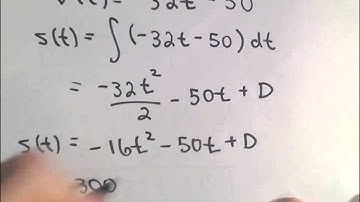 v(t) = -32t - 50
s(t) = ∫(-32t - 50) dt
= -32t²/2 - 50t + D
s(t) = -16t² - 50t + D
300